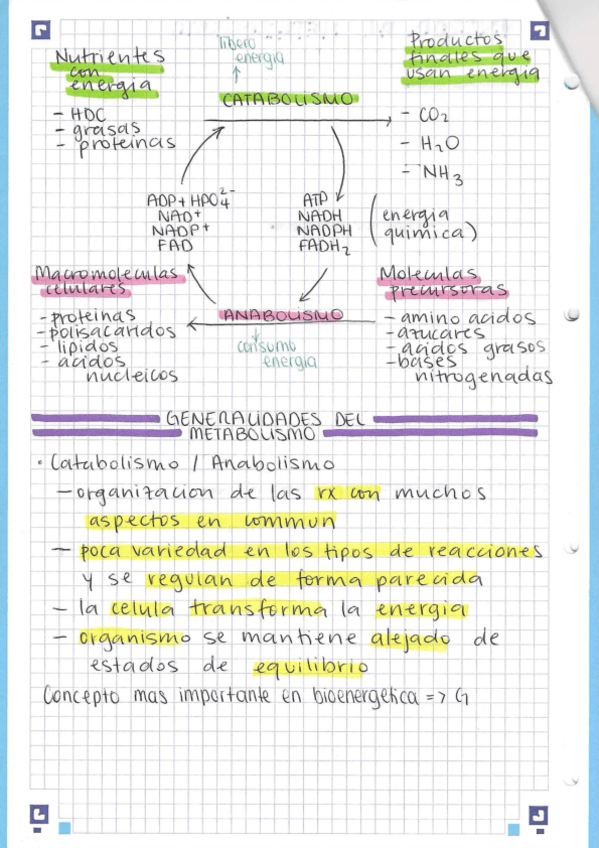 Nutrientes
con
energia
- HDC
- grasas
- proteinas
libero
energia
CATABOLISMO
Productos
finales que
usan energia
- CO2
- H2O
- NH3
ADP + HPO4 2-
NAD+
NADP+
FAD
ATP
NADH
NADPH
FADH2
(energia
quimica)
Macromoleculas
celulares
- proteinas
- polisacaridos
- lipidos
- acidos
nucleicos
ANABOLISMO
consumo
energia
Moleculas
precursoras
- amino acidos
- azucares
- acidos grasos
- bases
nitrogenadas
GENERALIDADES DEL
METABOLISMO
· Catabolismo / Anabolismo
- organizacion de las rx con muchos
aspectos en commun
- poca variedad en los tipos de reacciones
y se regulan de forma parecida
- la celula transforma la energia
- organismo se mantiene alejado de
estados de equilibrio
Concepto mas importante en bioenergetica => G